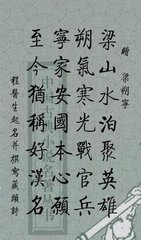 贈 梁朔寧
梁山水泊聚英雄
朔氣寒光戰官兵
寧家安國本心願
至今猶稱好漢名
程醫生起名并撰寫藏頭詩